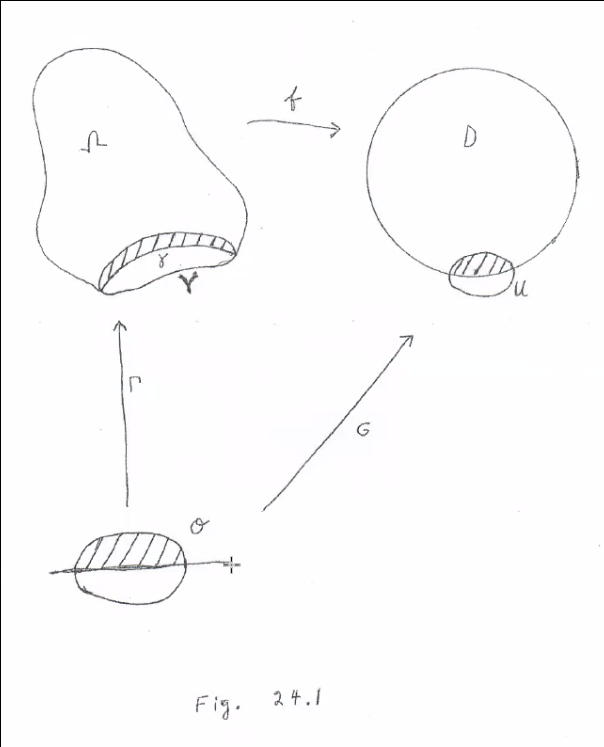 f
Ω
D
γ
Y
U
Γ
G
O
Fig. 24.1